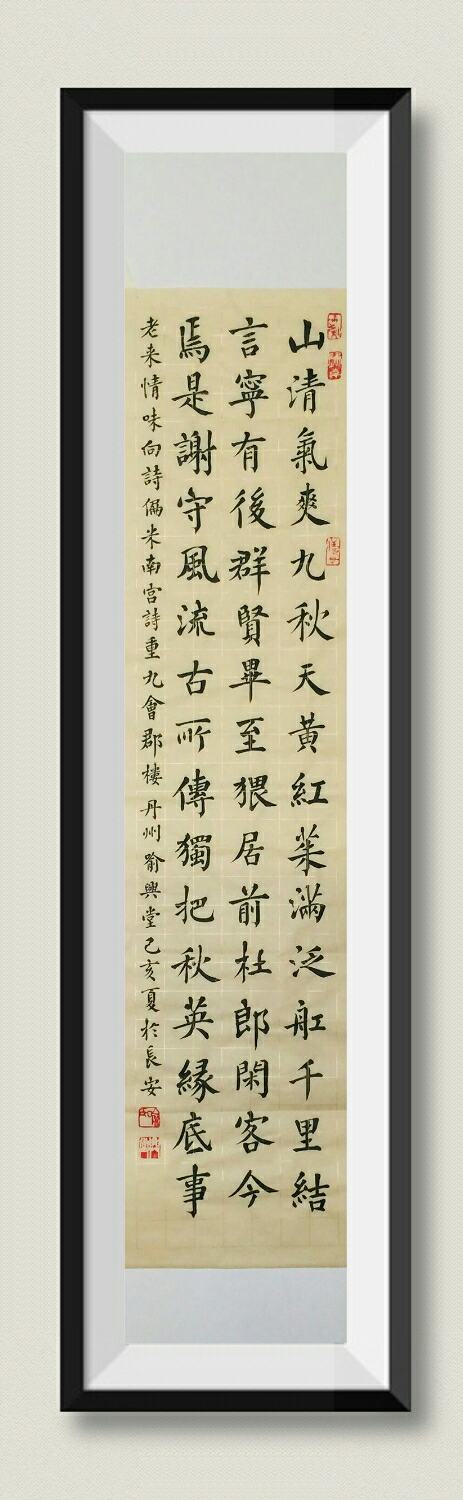 山清氣爽九秋天黃紅茱滿泛舡千里結
言寧有後群賢畢至猥居前杜郎閑客今
焉是謝守風流古所傳獨把秋英緣底事
老来情味向詩偏米南宮詩重九會郡樓 丹州 興堂己亥夏於長安